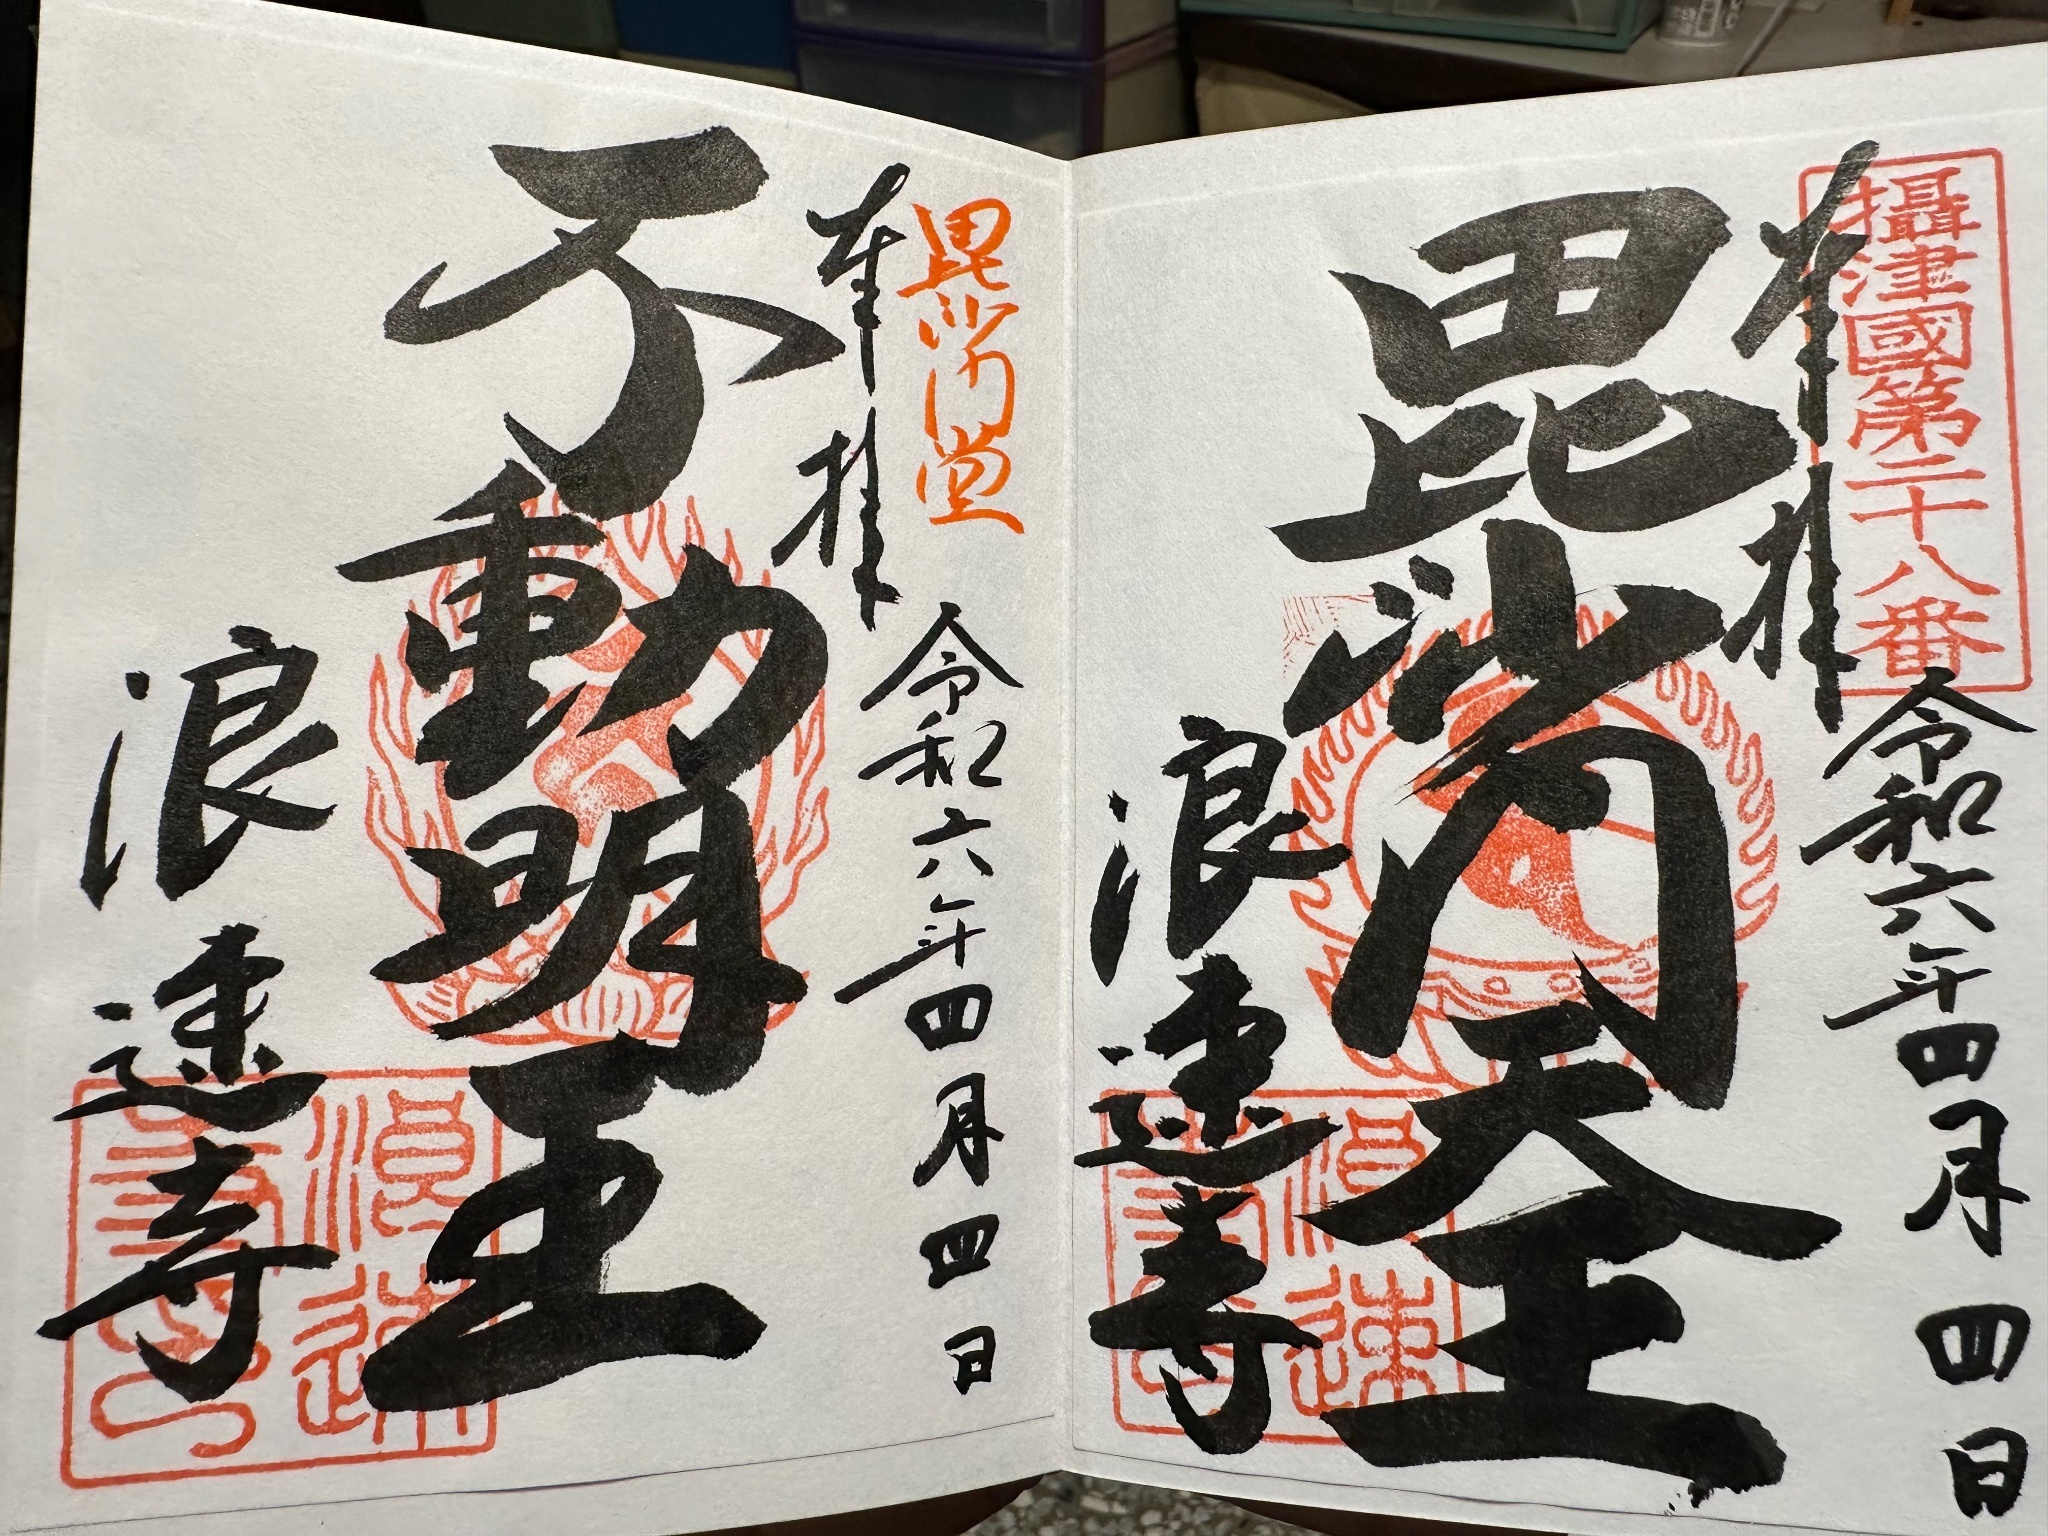 攝津國第二十八番
奉拝
令和六年四月四日
毘沙門天王
浪速寺
浪速寺
毘沙門堂
奉拝
令和六年四月四日
不動明王
浪速寺
浪速寺